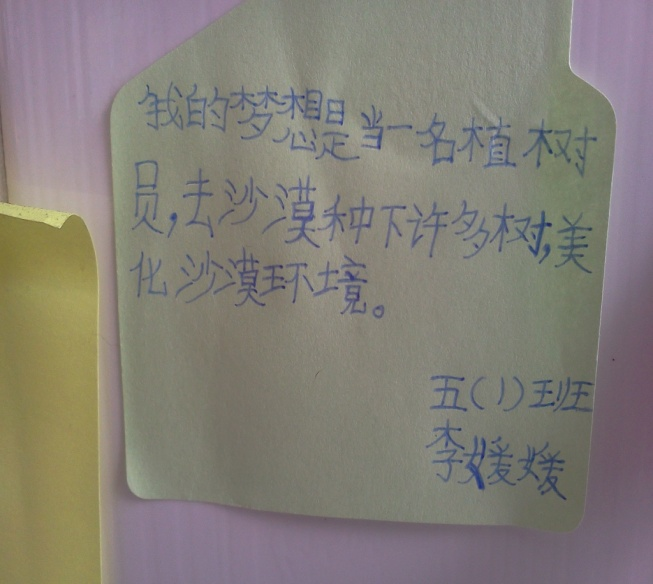 我的梦想是当一名植树
员,去沙漠种下许多树,美
化沙漠环境。
五(1)班
李媛媛